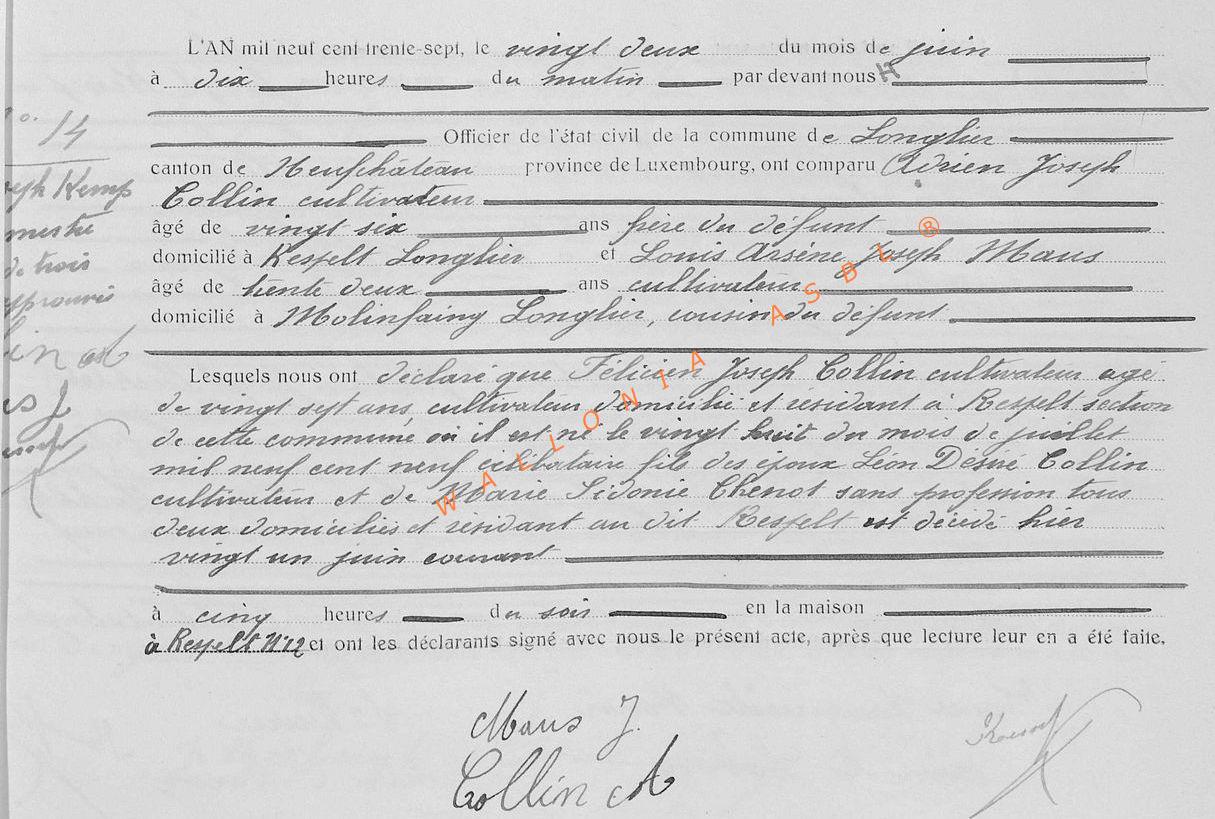 L'AN mil neuf cent trente-sept, le vingt deux du mois de juin
à dix heures du matin par devant nous H
N°. 14
Officier de l'état civil de la commune de Longlier
canton de Neufchâteau province de Luxembourg, ont comparu Adrien Joseph
eph Kemp
Collin cultivateur
âgé de vingt six ans frère du défunt
mestre
domicilié à Respelt Longlier et Louis Arsène Joseph Maus
de trois
âgé de trente deux ans cultivateur
approuvés
domicilié à Molinfaing Longlier, cousin du défunt
lin A
Lesquels nous ont déclaré que Félicien Joseph Collin cultivateur agé
de vingt sept ans, cultivateur domicilié et résidant à Respelt section
us J
de cette commune où il est né le vingt huit du mois de juillet
mil neuf cent neuf célibataire fils des époux Léon Désiré Collin
cultivateur et de Marie Sidonie Chenot sans profession tous
deux domiciliés et résidant au dit Respelt est décédé hier
vingt un juin courant
à cinq heures du soir en la maison
à Respelt N°12 et ont les déclarants signé avec nous le présent acte, après que lecture leur en a été faite.
Maus J.
Collin A
WALLONIA ASBL ®